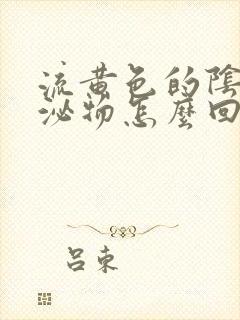 流黄色的陰
泌物怎麼回
吕束